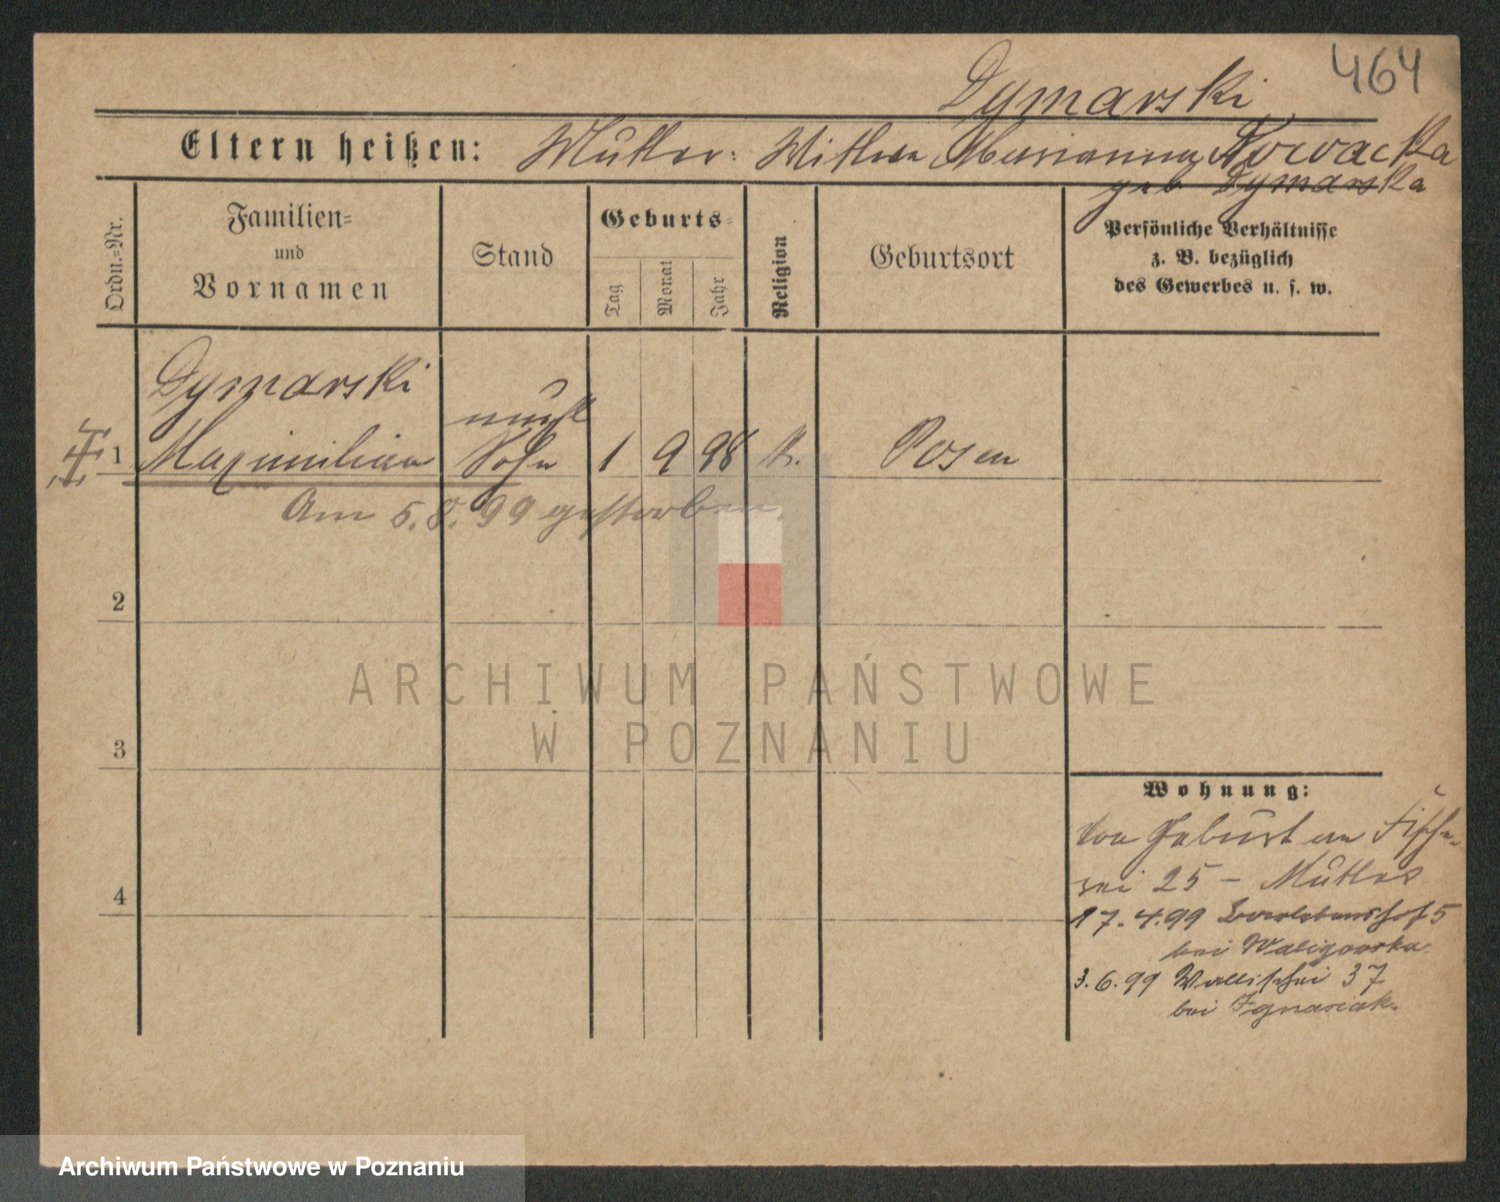 464
Dymarski
Eltern heißen: Mutter: Witwe Marianna Nowacka
geb Dymarska
Ordn.-Nr.
Familien-
und
Vornamen
Stand
Geburts-
Tag
Monat
Jahr
Religion
Geburtsort
Persönliche Verhältnisse
z. B. bezüglich
des Gewerbes u. s. w.
Dymarski
unehl
1 Maximilian Sohn 1 9 98 k. Posen
Am 5.8.99 gestorben
2
3
4
Wohnung:
von Geburt an Fische-
rei 25 - Mutter
17.4.99 5
bei Waligorska
3.6.99 Wallischei 37
bei Ignasiak.
ARCHIWUM PAŃSTWOWE
W POZNANIU
Archiwum Państwowe w Poznaniu